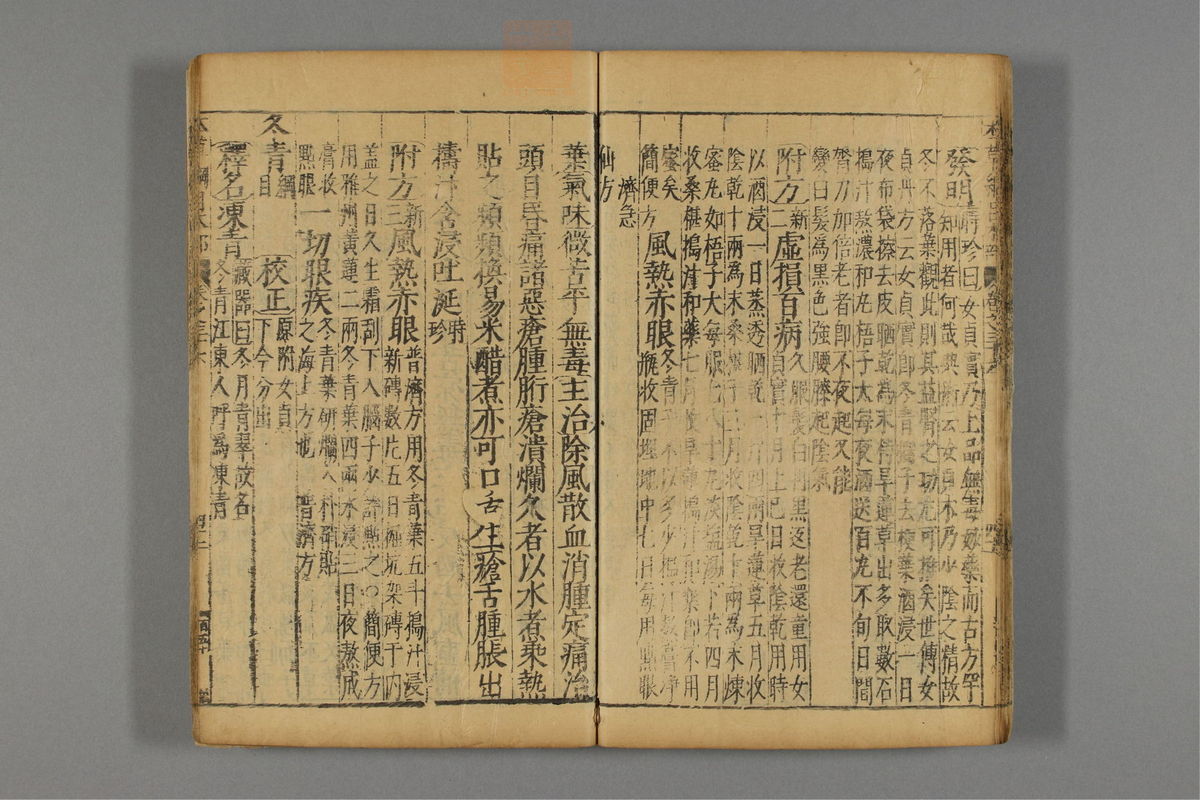 發明時珍曰女貞實乃上品無毒妙藥而古方罕
知用者何哉典術云女貞木乃少陰之精故
冬不落葉觀此則其益腎之功尤可推矣世傳女
貞丹方云女貞實即冬青樹子去梗葉酒浸一日
夜布袋擦去皮晒乾為末待旱蓮草出多取數石
搗汁熬濃和丸梧子大每夜酒送百丸不旬日間
膂力加倍老者即不夜起又能
變白髮為黑色強腰膝起陰氣
附方新二虛損百病久服髮白再黑返老還童用女
貞實十月上巳日收陰乾用時
以酒浸一日蒸透晒乾一斤四兩旱蓮草五月收
陰乾十兩為末桑椹子三月收陰乾十兩為末煉
蜜丸如梧子大每服七八十丸淡鹽湯下若四月
收桑椹搗汁和藥七月收旱蓮搗汁和藥即不用
蜜矣
簡便方風熱赤眼冬青子不以多少搗汁熬膏淨
瓶收固埋地中七日每用點眼
濟急
仙方
葉氣味微苦平無毒主治除風散血消腫定痛治
頭目昏痛諸惡瘡腫胻瘡潰爛久者以水煮乘熱
貼之頻頻換易米醋煮亦可口舌生瘡舌腫脹出
擣汁含浸吐涎時珍
附方新三風熱赤眼普濟方用冬青葉五斗搗汁浸
新磚數片五日掘坑架磚于內
盖之日久生霜刮下入腦子少許點之○簡便方
用雅州黃連二兩冬青葉四兩水浸三日夜熬成
膏收點眼一切眼疾冬青葉研爛入朴硝貼
之海上方也普濟方
冬青綱目校正原附女貞
下今分出
釋名凍青藏器曰冬月青翠故名
冬青江東人呼為凍青